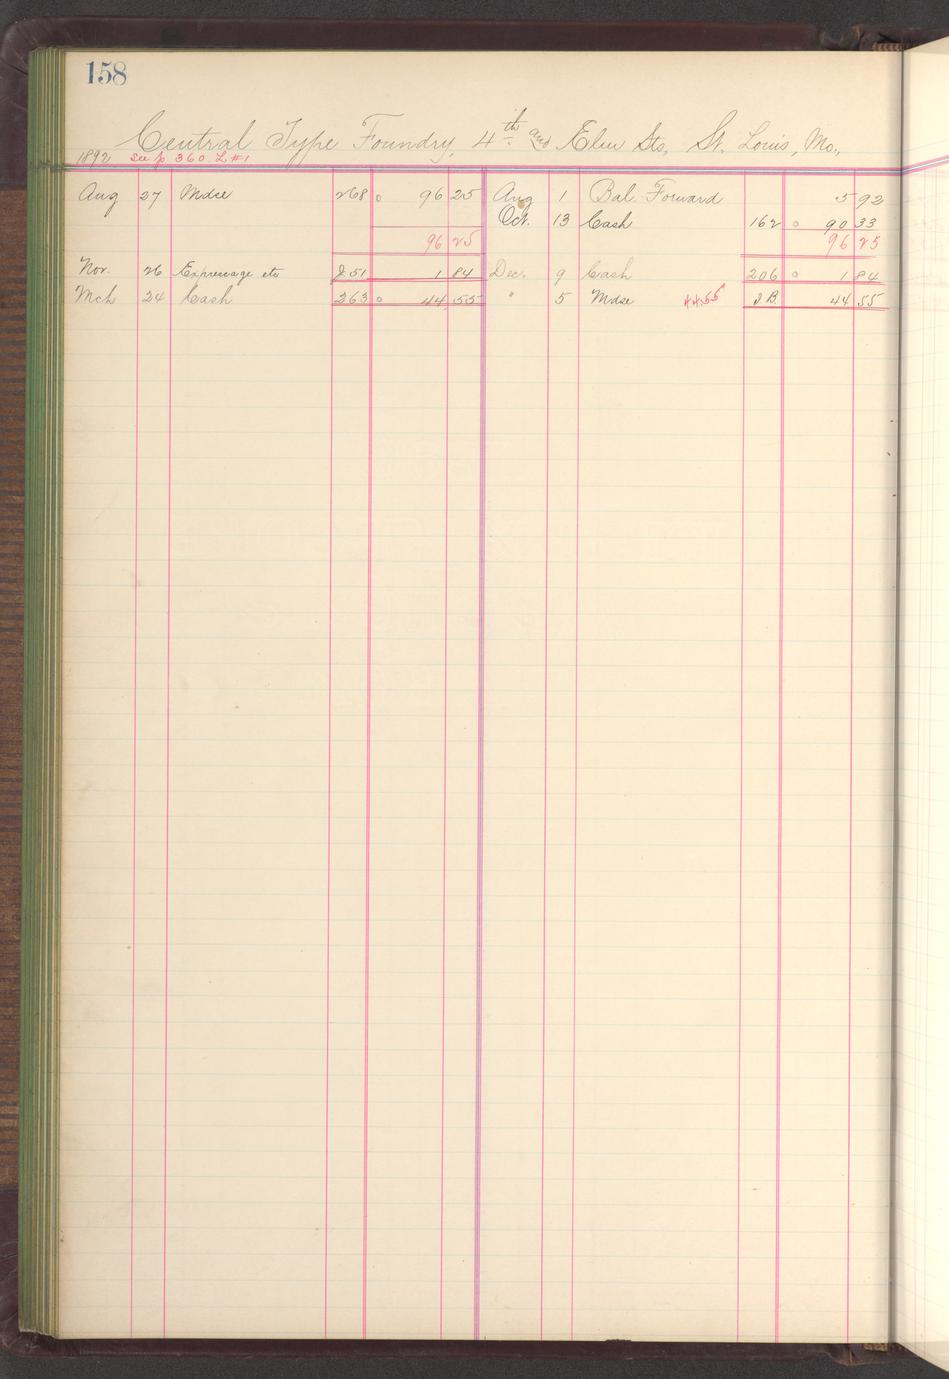 158
Central Type Foundry, 4th and Elm Sts, St. Louis, Mo.,
1892 see p 360 L #1
Aug 27 Mdse 268 o 96 25 Aug 1 Bal. Forward 5 92
Oct. 13 Cash 162 o 90 33
96 25 96 25
Nov. 26 Expressage etc J 51 1 84 Dec. 9 Cash 206 o 1 84
Mch 24 Cash 263 o 44 55 " 5 Mdse 44.55 I B. 44 55